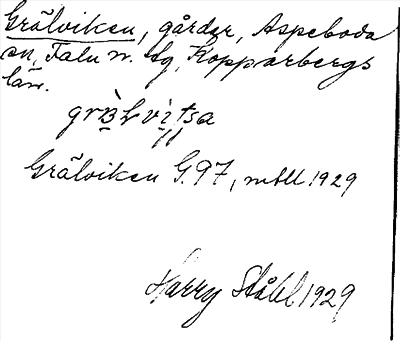 Grälviken, gårdar, Aspeboda
sn, Falu n. tg, Kopparbergs
län.
Grälviken G.97, mtll 1929
Harry Ståhl 1929